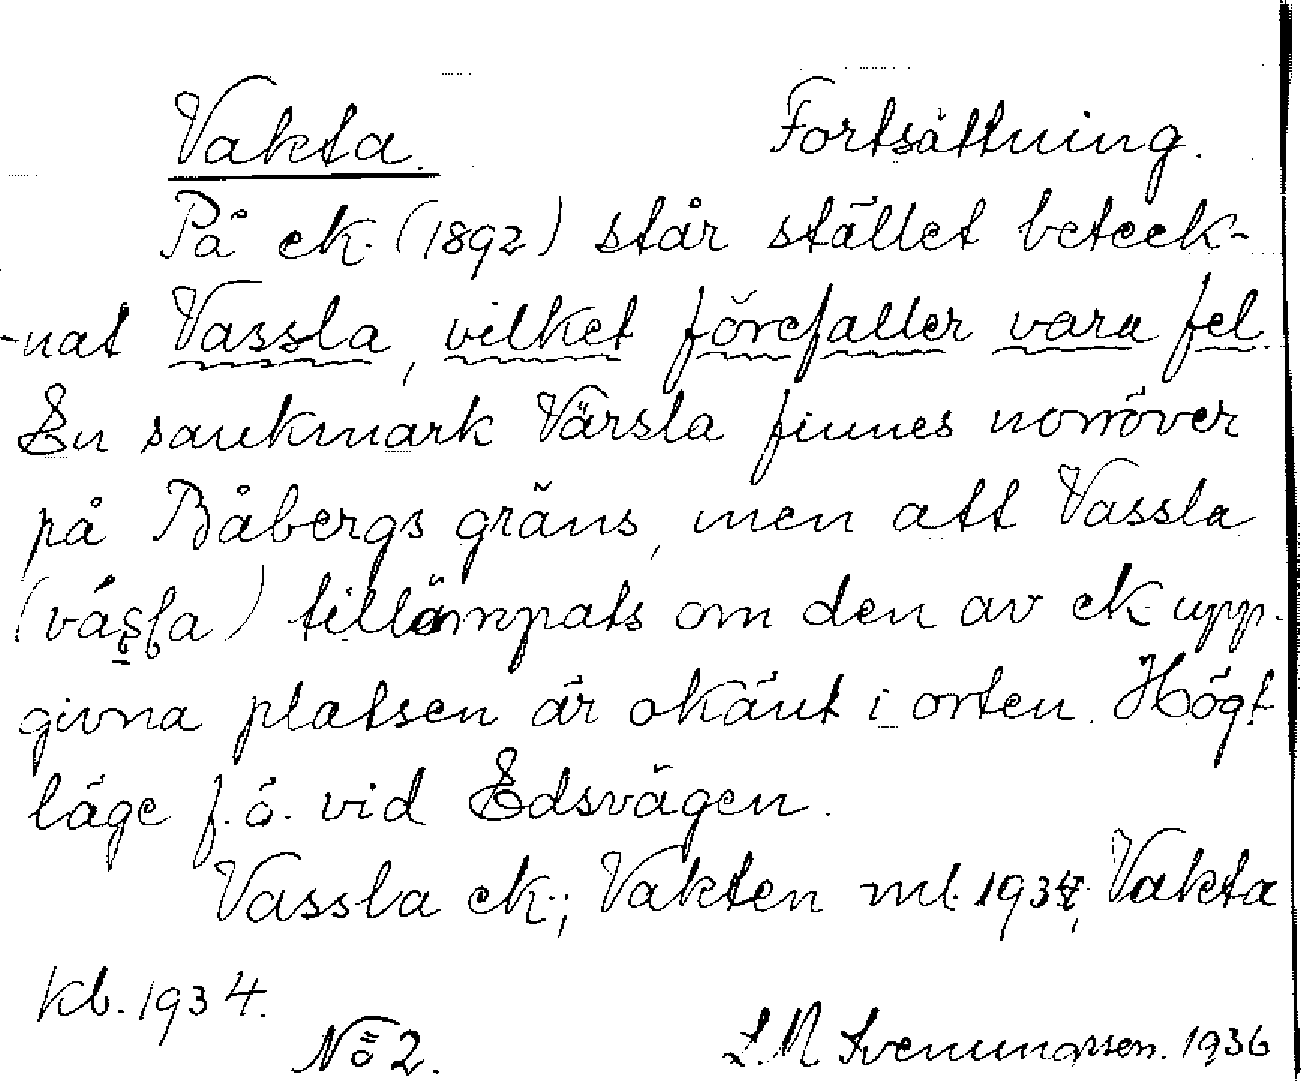 Vakta. Fortsättning.
På ek. (1892) står stället beteck-
-nat Vassla, vilket förefaller vara fel.
En sankmark Värsla finnes norröver
på Båbergs gräns, men att Vassla
(vás̥ḷa) tillämpats om den av ek. upp-
givna platsen är okänt i orten. Högt
läge f.ö. vid Edsvägen.
Vassla ek.; Vakten ml. 1934; Vakta
kb. 1934.
No 2. L.M Svenungsson. 1936